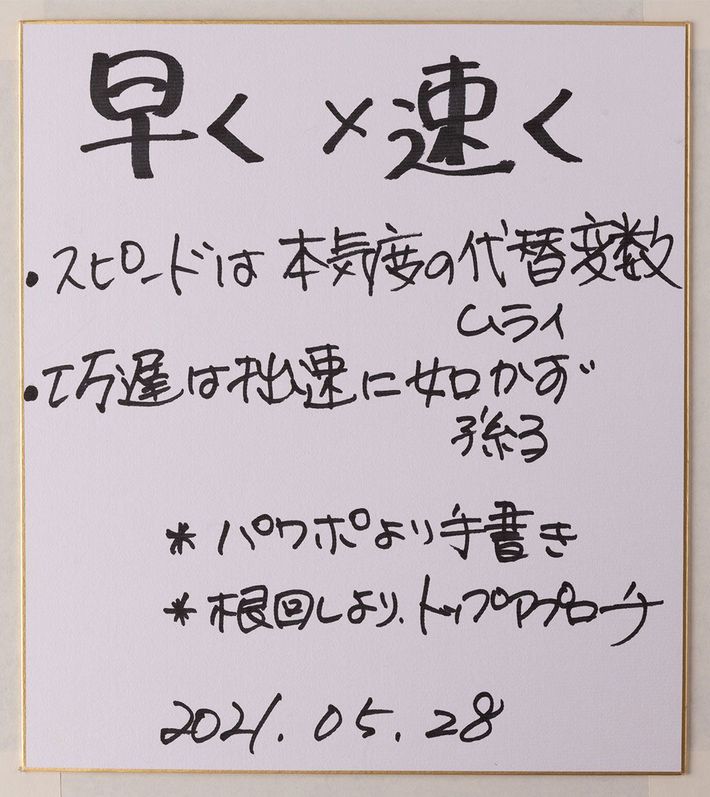 早く×速く
・スピードは本気度の代替変数
ムライ
・巧遅は拙速に如かず
孫子
* パワポより手書き
* 根回しより、トップアプローチ
2021.05.28